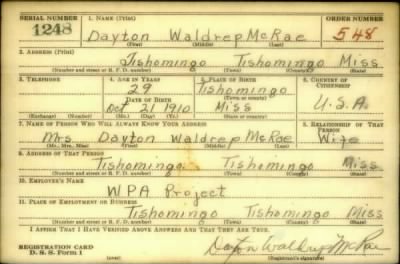 SERIAL NUMBER 1. NAME (Print) ORDER NUMBER
1248 Dayton Waldrep McRae 548
(First) (Middle) (Last)
2. ADDRESS (Print)
Tishomingo Tishomingo Miss
(Number and street or R. F. D. number) (Town) (County) (State)
3. TELEPHONE 4. AGE IN YEARS 5. PLACE OF BIRTH 6. COUNTRY OF CITIZENSHIP
29 Tishomingo
DATE OF BIRTH (Town or county)
Oct 21 1910 Miss U.S.A.
(Exchange) (Number) (Mo.) (Day) (Yr.) (State or country)
7. NAME OF PERSON WHO WILL ALWAYS KNOW YOUR ADDRESS 8. RELATIONSHIP OF THAT PERSON
Mrs Dayton Waldrep McRae Wife
(Mr., Mrs., Miss) (First) (Middle) (Last)
9. ADDRESS OF THAT PERSON
Tishomingo Tishomingo Miss
(Number and street or R. F. D. number) (Town) (County) (State)
10. EMPLOYER'S NAME
WPA Project
11. PLACE OF EMPLOYMENT OR BUSINESS
Tishomingo Tishomingo Miss
(Number and street or R. F. D. number) (Town) (County) (State)
I AFFIRM THAT I HAVE VERIFIED ABOVE ANSWERS AND THAT THEY ARE TRUE.
REGISTRATION CARD
D. S. S. Form 1
Dayton Waldrep McRae
(Registrant's signature)